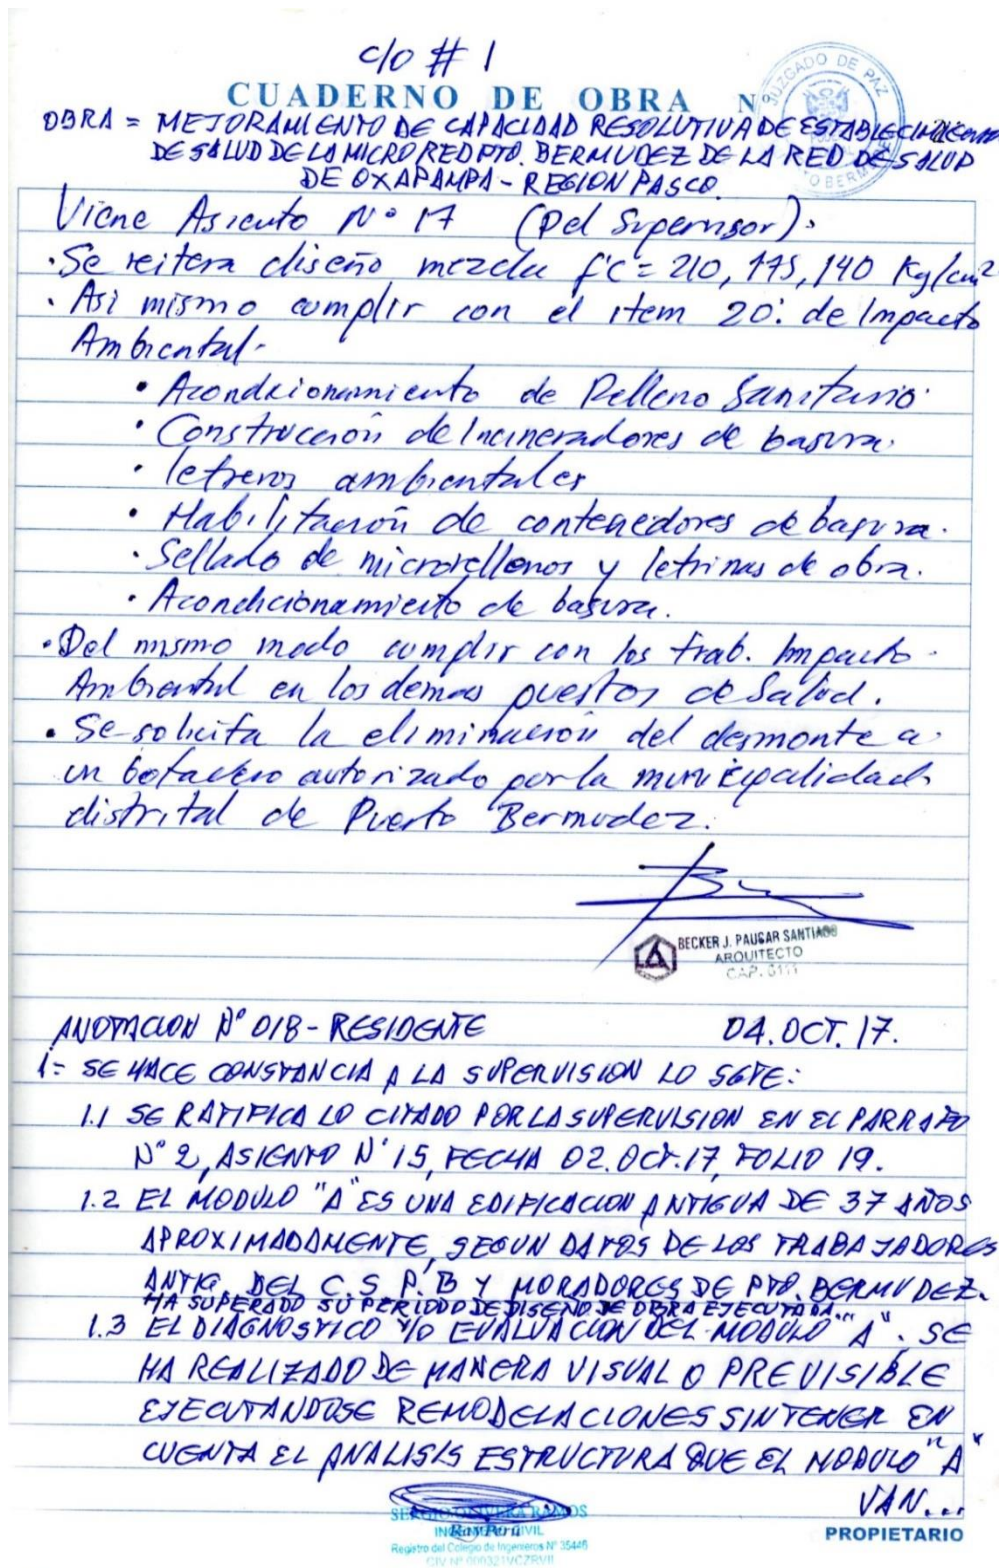 c/o # 1
CUADERNO DE OBRA Nº
JUZGADO DE PAZ
OBRA = MEJORAMIENTO DE CAPACIDAD RESOLUTIVA DE ESTABLECIMIENTO
DE SALUD DE LA MICRO RED PTO. BERMUDEZ DE LA RED DE SALUD
DE OXAPAMPA - REGION PASCO
Viene Asiento N° 17 (Del Supervisor).
· Se reitera diseño mezcla f'c = 210, 175, 140 Kg/cm2
· Asi mismo cumplir con el item 20: de Impacto
Ambiental-
· Acondicionamiento de Relleno Sanitario.
· Construccion de Incineradores de basura.
· letreros ambientales
· Habilitación de contenedores de basura.
· Sellado de microrellenos y letrinas de obra.
· Acondicionamiento de basura.
· Del mismo modo cumplir con los trab. Impacto
Ambiental en los demas puestos de Salud.
· Se solicita la eliminación del desmonte a
un botadero autorizado por la municipalidad
distrital de Puerto Bermudez.
BECKER J. PAUCAR SANTIAGO
ARQUITECTO
CAP. 6111
ANOTACION N° 018 - RESIDENTE 04. OCT. 17.
1= SE HACE CONSTANCIA A LA SUPERVISION LO SGTE:
1.1 SE RATIFICA LO CITADO POR LA SUPERVISION EN EL PARRAFO
N° 2, ASIENTO N° 15, FECHA 02. OCT. 17, FOLIO 19.
1.2 EL MODULO "A" ES UNA EDIFICACION ANTIGUA DE 37 AÑOS
APROXIMADAMENTE, SEGUN DATOS DE LOS TRABAJADORES
ANTIG. DEL C.S P.B Y MORADORES DE PTO. BERMUDEZ.
HA SUPERADO SU PERIODO DE DISEÑO DE OBRA EJECUTADA.
1.3 EL DIAGNOSTICO Y/O EVALUACION DEL MODULO "A". SE
HA REALIZADO DE MANERA VISUAL O PREVISIBLE
EJECUTANDOSE REMODELACIONES SIN TENER EN
CUENTA EL ANALISIS ESTRUCTURA QUE EL MODULO "A"
VAN...
INGENIERO CIVIL
Registro del Colegio de Ingenieros Nº 35446
PROPIETARIO